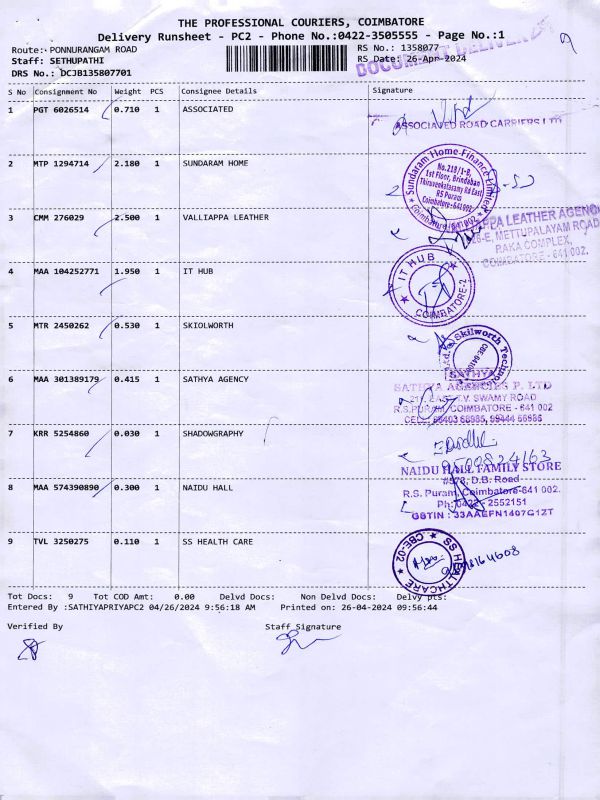 THE PROFESSIONAL COURIERS, COIMBATORE
Delivery Runsheet - PC2 - Phone No.:0422-3505555 - Page No.:1
Route: PONNURANGAM ROAD
RS No.: 1358077
Staff: SETHUPATHI
RS Date: 26-Apr-2024
DOCUMENT DELIVER
DRS No.: DCJB135807701
S No Consignment No Weight PCS Consignee Details Signature
1 PGT 6026514 0.710 1 ASSOCIATED
ASSOCIATED ROAD CARRIERS LTD
2 MTP 1294714 2.180 1 SUNDARAM HOME
Sundaram Home Finance Limited
No.218/1-B,
1st Floor, Brindaban
Thiruvenkatasamy Rd East
RS Puram
Coimbatore-641002
Coimbatore-641 002
3 CMM 276029 2.500 1 VALLIAPPA LEATHER
PPA LEATHER AGENC
METTUPALAYAM ROAD
RAKA COMPLEX,
COIMBATORE - 641 002.
4 MAA 104252771 1.950 1 IT HUB
IT HUB
COIMBATORE-2
5 MTR 2450262 0.530 1 SKIOLWORTH
Skilworth Techno
6 MAA 301389179 0.415 1 SATHYA AGENCY
SATHYA
SATHYA AGENCIES P. LTD
EAST T.V. SWAMY ROAD
R.S.PURAM, COIMBATORE - 641 002
7 KRR 5254860 0.030 1 SHADOWGRAPHY
9500824163
8 MAA 574390890 0.300 1 NAIDU HALL
NAIDU HALL FAMILY STORE
D.B. Road
R.S. Puram, Coimbatore-641 002.
Ph: 0422 - 2552151
GSTIN : 33AAEFN1407G1ZT
9 TVL 3250275 0.110 1 SS HEALTH CARE
SS HEALTHCARE
CBE-02
Tot Docs: 9 Tot COD Amt: 0.00 Delvd Docs: Non Delvd Docs: Delvy pts:
Entered By :SATHIYAPRIYAPC2 04/26/2024 9:56:18 AM Printed on: 26-04-2024 09:56:44
Verified By
Staff Signature